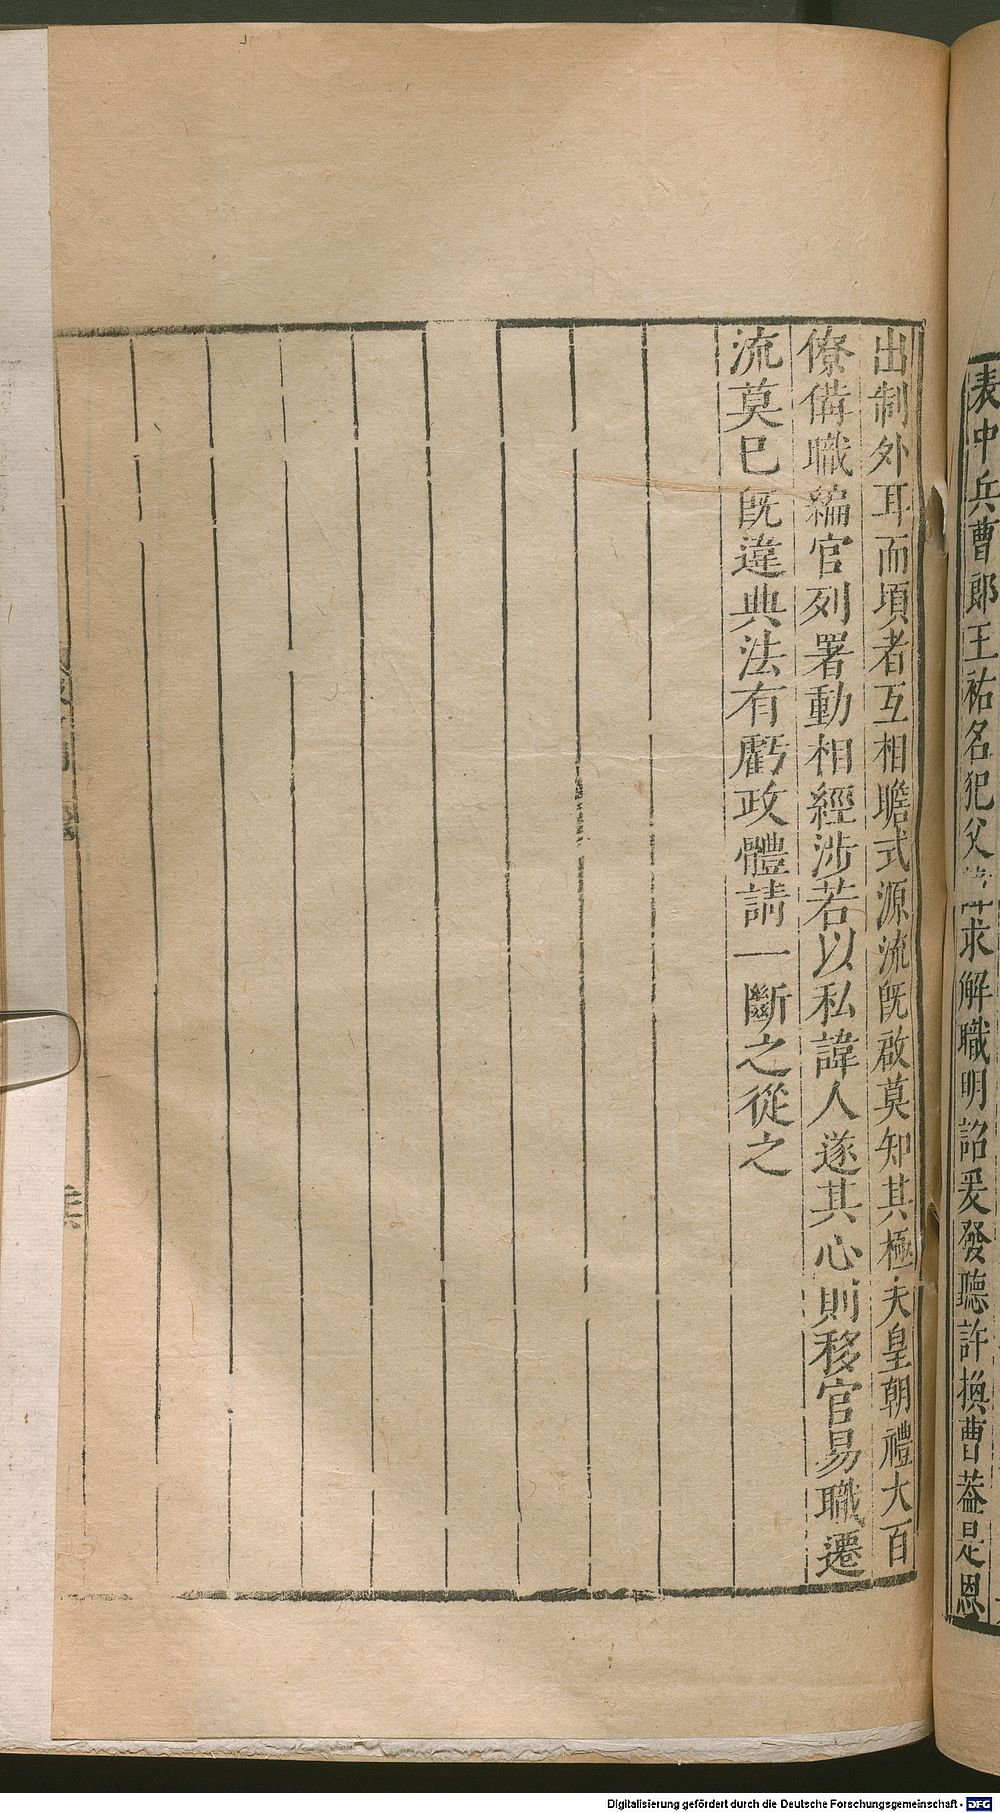 表中兵曹郎王祐名犯父諱求解職明詔爰發聽許換曹蓋是恩
出制外耳而頃者互相瞻式源流既啟莫知其極夫皇朝禮大百
僚備職編官列署動相經涉若以私諱人遂其心則移官易職遷
流莫已既違典法有虧政體請一斷之從之
Digitalisierung gefördert durch die Deutsche Forschungsgemeinschaft - DFG